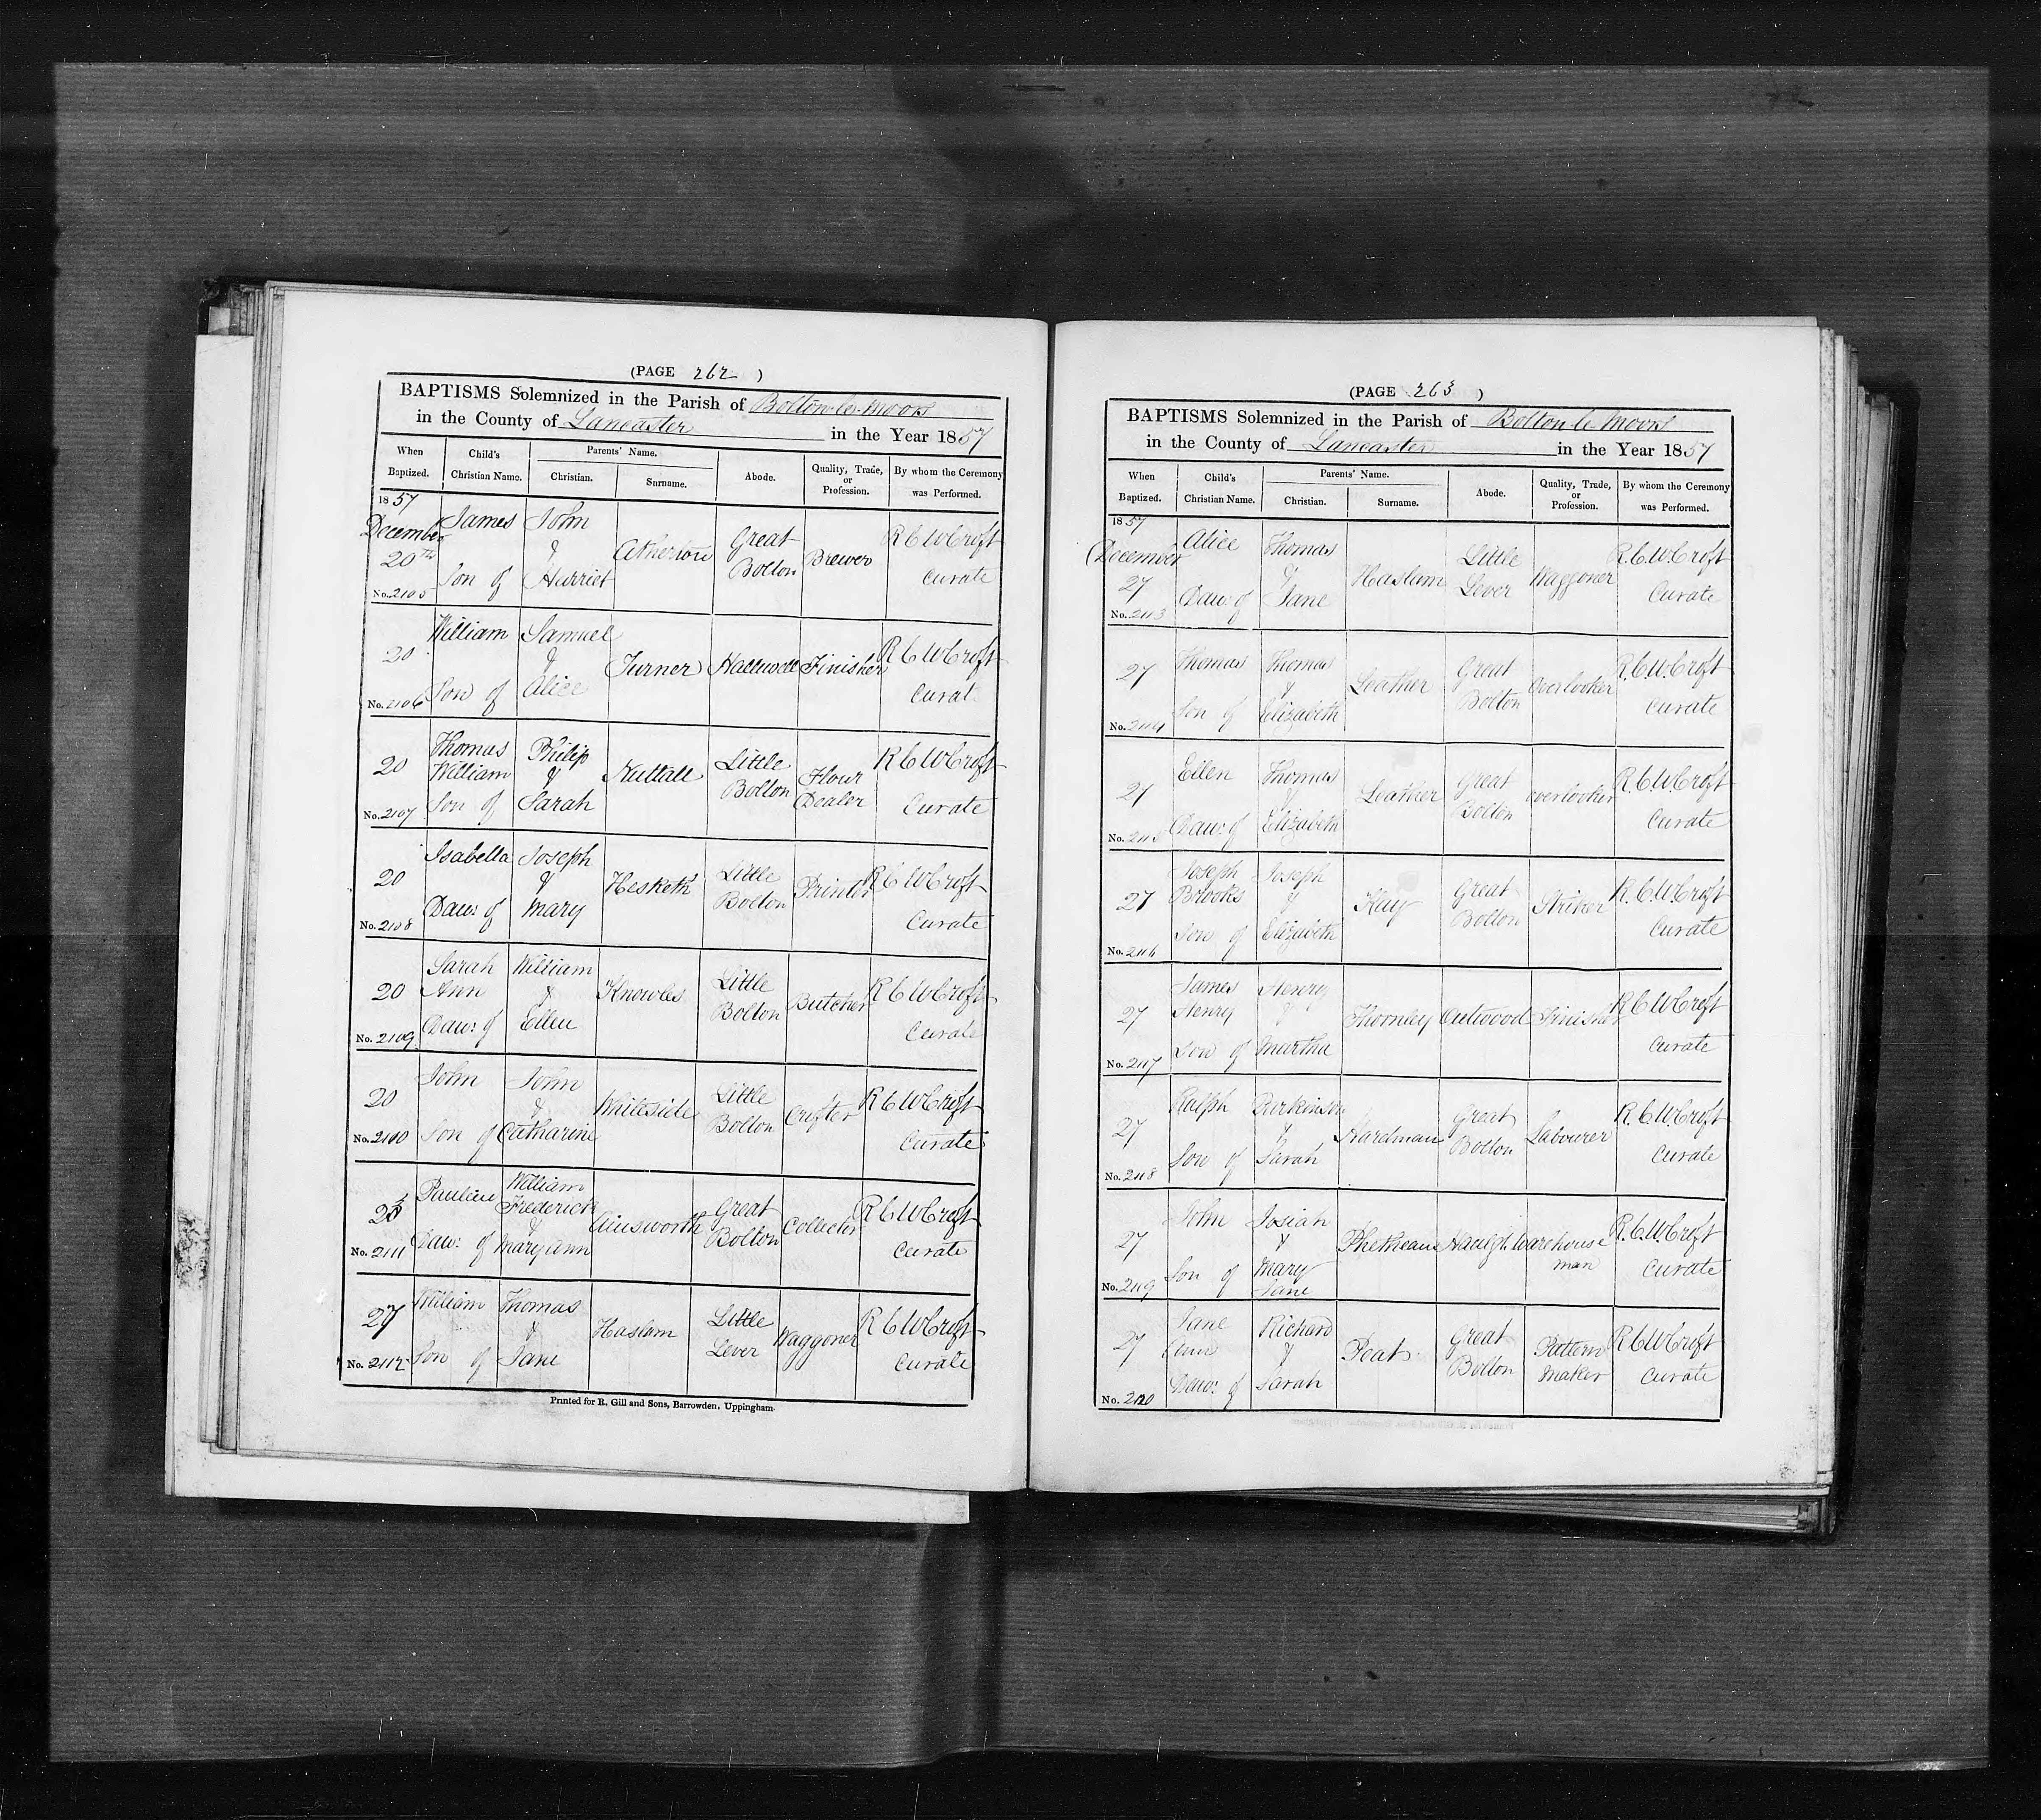 (PAGE 262)
BAPTISMS Solemnized in the Parish of Bolton-le-Moors
in the County of Lancaster in the Year 1857
When Baptized. Child's Christian Name. Parents' Name. Christian. Surname. Abode. Quality, Trade, or Profession. By whom the Ceremony was Performed.
1857 December 20th No. 2105 James Son of John & Harriet Atherton Great Bolton Brewer R C W Croft Curate
20 No. 2106 William Son of Samuel & Alice Turner Halliwell Finisher R C W Croft Curate
20 No. 2107 Thomas William Son of Philip & Sarah Nuttall Little Bolton Flour Dealer R C W Croft Curate
20 No. 2108 Isabella Daur. of Joseph & Mary Hesketh Little Bolton Printer R C W Croft Curate
20 No. 2109 Sarah Ann Daur. of William & Ellen Knowles Little Bolton Butcher R C W Croft Curate
20 No. 2110 John Son of John & Catharine Whiteside Little Bolton Crofter R C W Croft Curate
No. 2111 Pauline Daur. of William Frederick & Mary Ann Ainsworth Great Bolton Collector R C W Croft Curate
27 No. 2112 William Son of Thomas & Jane Haslam Little Lever Waggoner R C W Croft Curate
Printed for R. Gill and Sons, Barrowden, Uppingham.
(PAGE 263)
BAPTISMS Solemnized in the Parish of Bolton-le-Moors
in the County of Lancaster in the Year 1857
When Baptized. Child's Christian Name. Parents' Name. Christian. Surname. Abode. Quality, Trade, or Profession. By whom the Ceremony was Performed.
1857 December 27 No. 2113 Alice Daur. of Thomas & Jane Haslam Little Lever Waggoner R.C.W.Croft Curate
27 No. 2114 Thomas Son of Thomas & Elizabeth Leather Great Bolton Overlooker R.C.W.Croft Curate
27 No. 2115 Ellen Daur. of Thomas & Elizabeth Leather Great Bolton Overlooker R.C.W.Croft Curate
27 No. 2116 Joseph Brooks Son of Joseph & Elizabeth Kay Great Bolton Striker R.C.W.Croft Curate
27 No. 2117 James Henry Son of Henry & Martha Thornley Outwood Finisher R C W Croft Curate
27 No. 2118 Ralph Son of Parkinson & Sarah Hardman Great Bolton Labourer R.C.W.Croft Curate
27 No. 2119 John Son of Josiah & Mary Jane Phethean Haulgh Warehouse man R.C.W.Croft Curate
27 No. 2120 Jane Ann Daur. of Richard & Sarah Peat Great Bolton Pattern Maker R C W Croft Curate